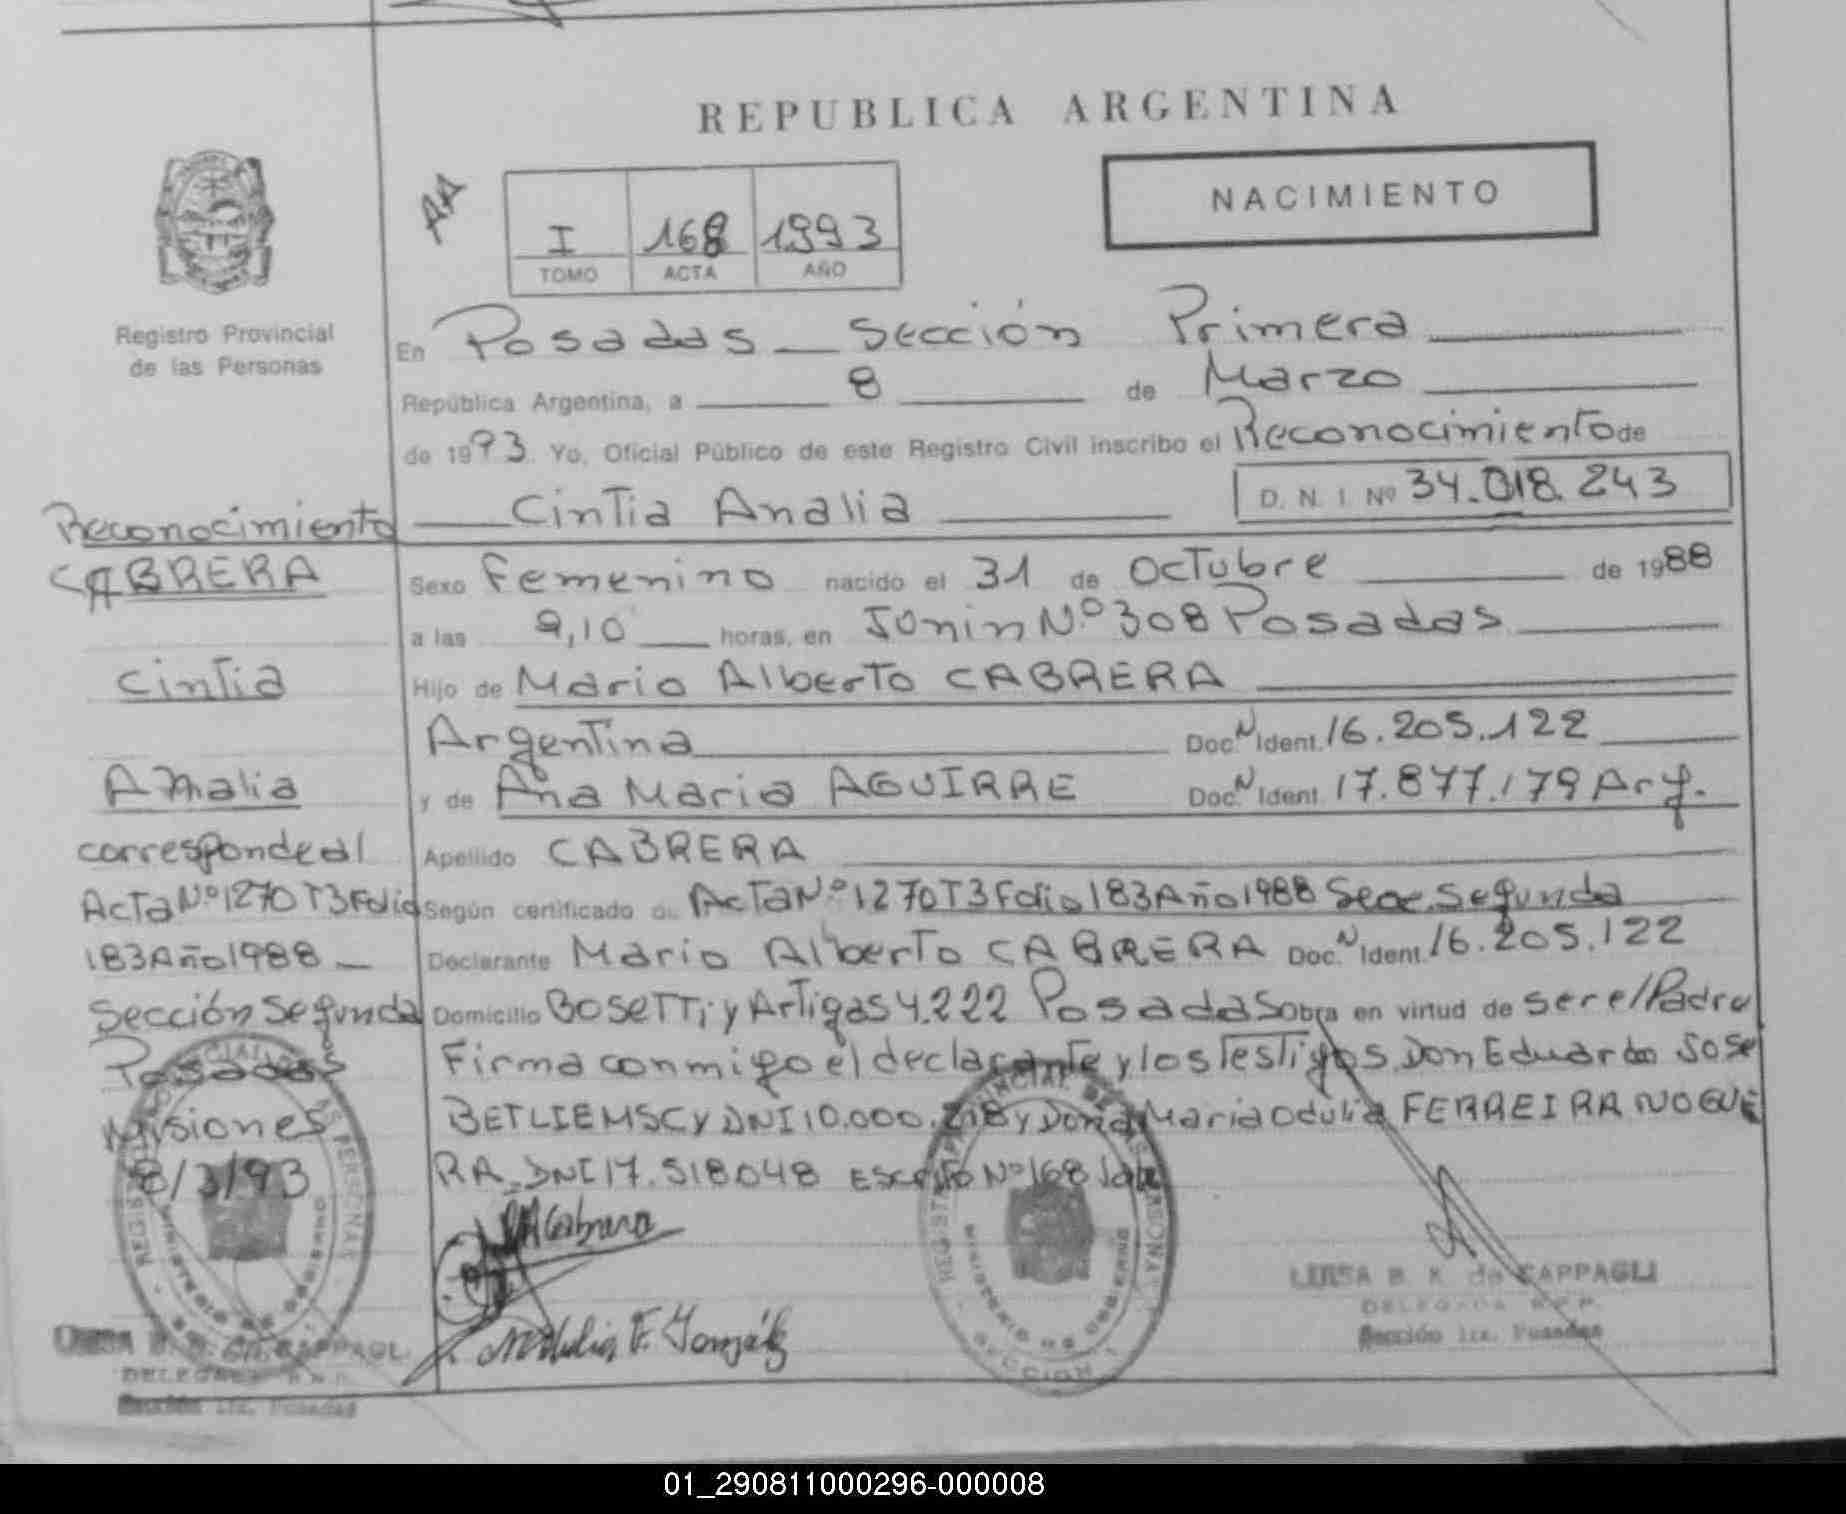 REPUBLICA ARGENTINA
NACIMIENTO
AA
I 168 1993
TOMO ACTA AÑO
Registro Provincial
de las Personas
En Posadas Sección Primera
República Argentina, a 8 de Marzo
de 1993. Yo, Oficial Público de este Registro Civil inscribo el Reconocimiento de
Cintia Analia D. N. I. Nº 34.018.243
Sexo Femenino nacido el 31 de Octubre de 1988
a las 9,10 horas, en Junin Nº 308 Posadas
Hijo de Mario Alberto CABRERA
Argentina Doc. N Ident. 16.205.122
y de Ana Maria AGUIRRE Doc. N Ident. 17.877.179 Arg.
Apellido CABRERA
Según certificado d. Acta Nº 1270 T3 Folio 183 Año 1988 Secc. Segunda
Declarante Mario Alberto CABRERA Doc. N Ident. 16.205.122
Domicilio Bosetti y Artigas 4.222 Posadas Obra en virtud de ser el Padre
Firma conmigo el declarante y los Testigos Don Eduardo Jose
BETLIEMSCY DNI 10.000. y Doña Maria Odulia FERREIRA NOGUE
RA DNI 17.518048 Escrito Nº 168
Reconocimiento
CABRERA
Cintia
Analia
corresponde al
Acta Nº 1270 T3 Folio
183 Año 1988
Sección Segunda
Posadas
Misiones
8/3/93
LUISA B. K. de CAPPAGLI
DELEGADA R.P.P.
Sección 1ra. Posadas
LUISA B. K. de CAPPAGLI
DELEGADA R.P.P.
Sección 1ra. Posadas
01_290811000296-000008